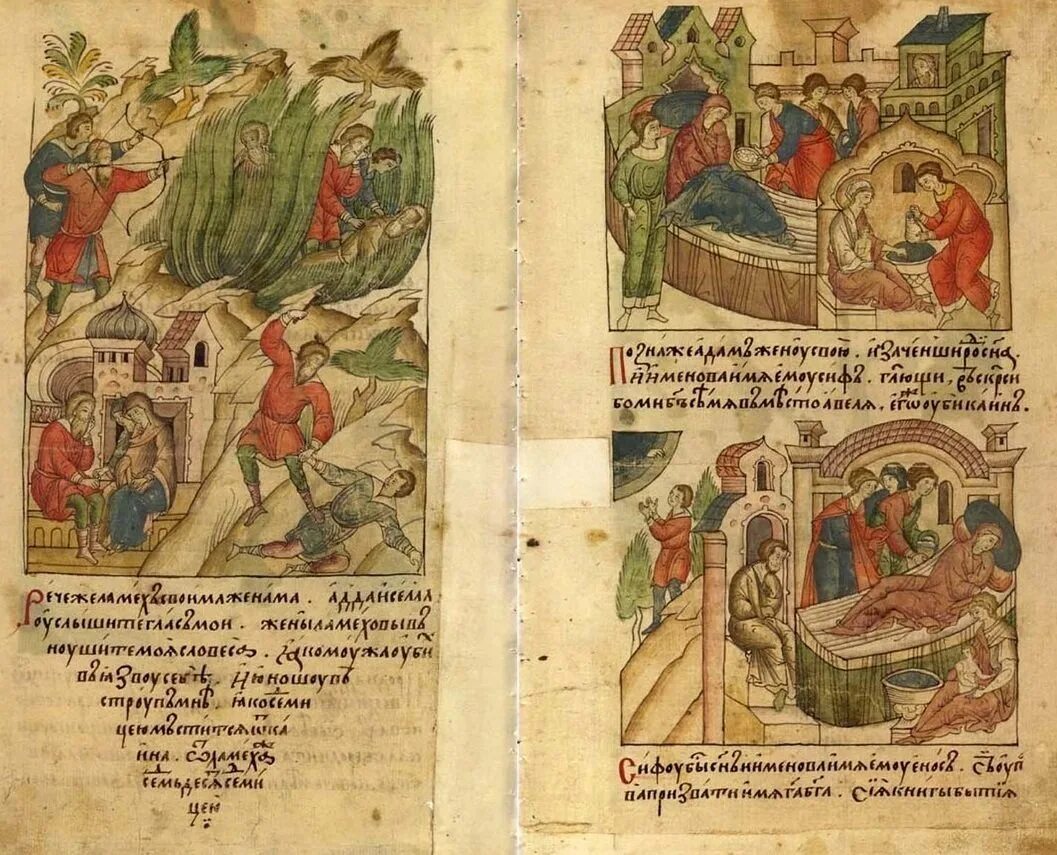 Речежеламехъсвоимаженама. аддаиселла
оуслышитегласъмои. женыламеховывъ
ноушитемояꙗсловеса. ꙗкомоужаоуби
въꙗзвоусебѣ. июношоувъ
строупъмнѣ. ꙗкоседми
цеюмъститсяѿка
ина. ѿламеха
семьдесѧтседми
цею
Познажеадамъженоусвою. изаченширодисына.
иименоваимяемоусифъ. глющи, въскреси
бомибъсемявъмѣстоавеля. егожеоубикаинъ.
Сифоубысынъиименоваимяемоуеносъ. сьоуп
вапризватиимягабга. Сиꙗкнигыбытиꙗ